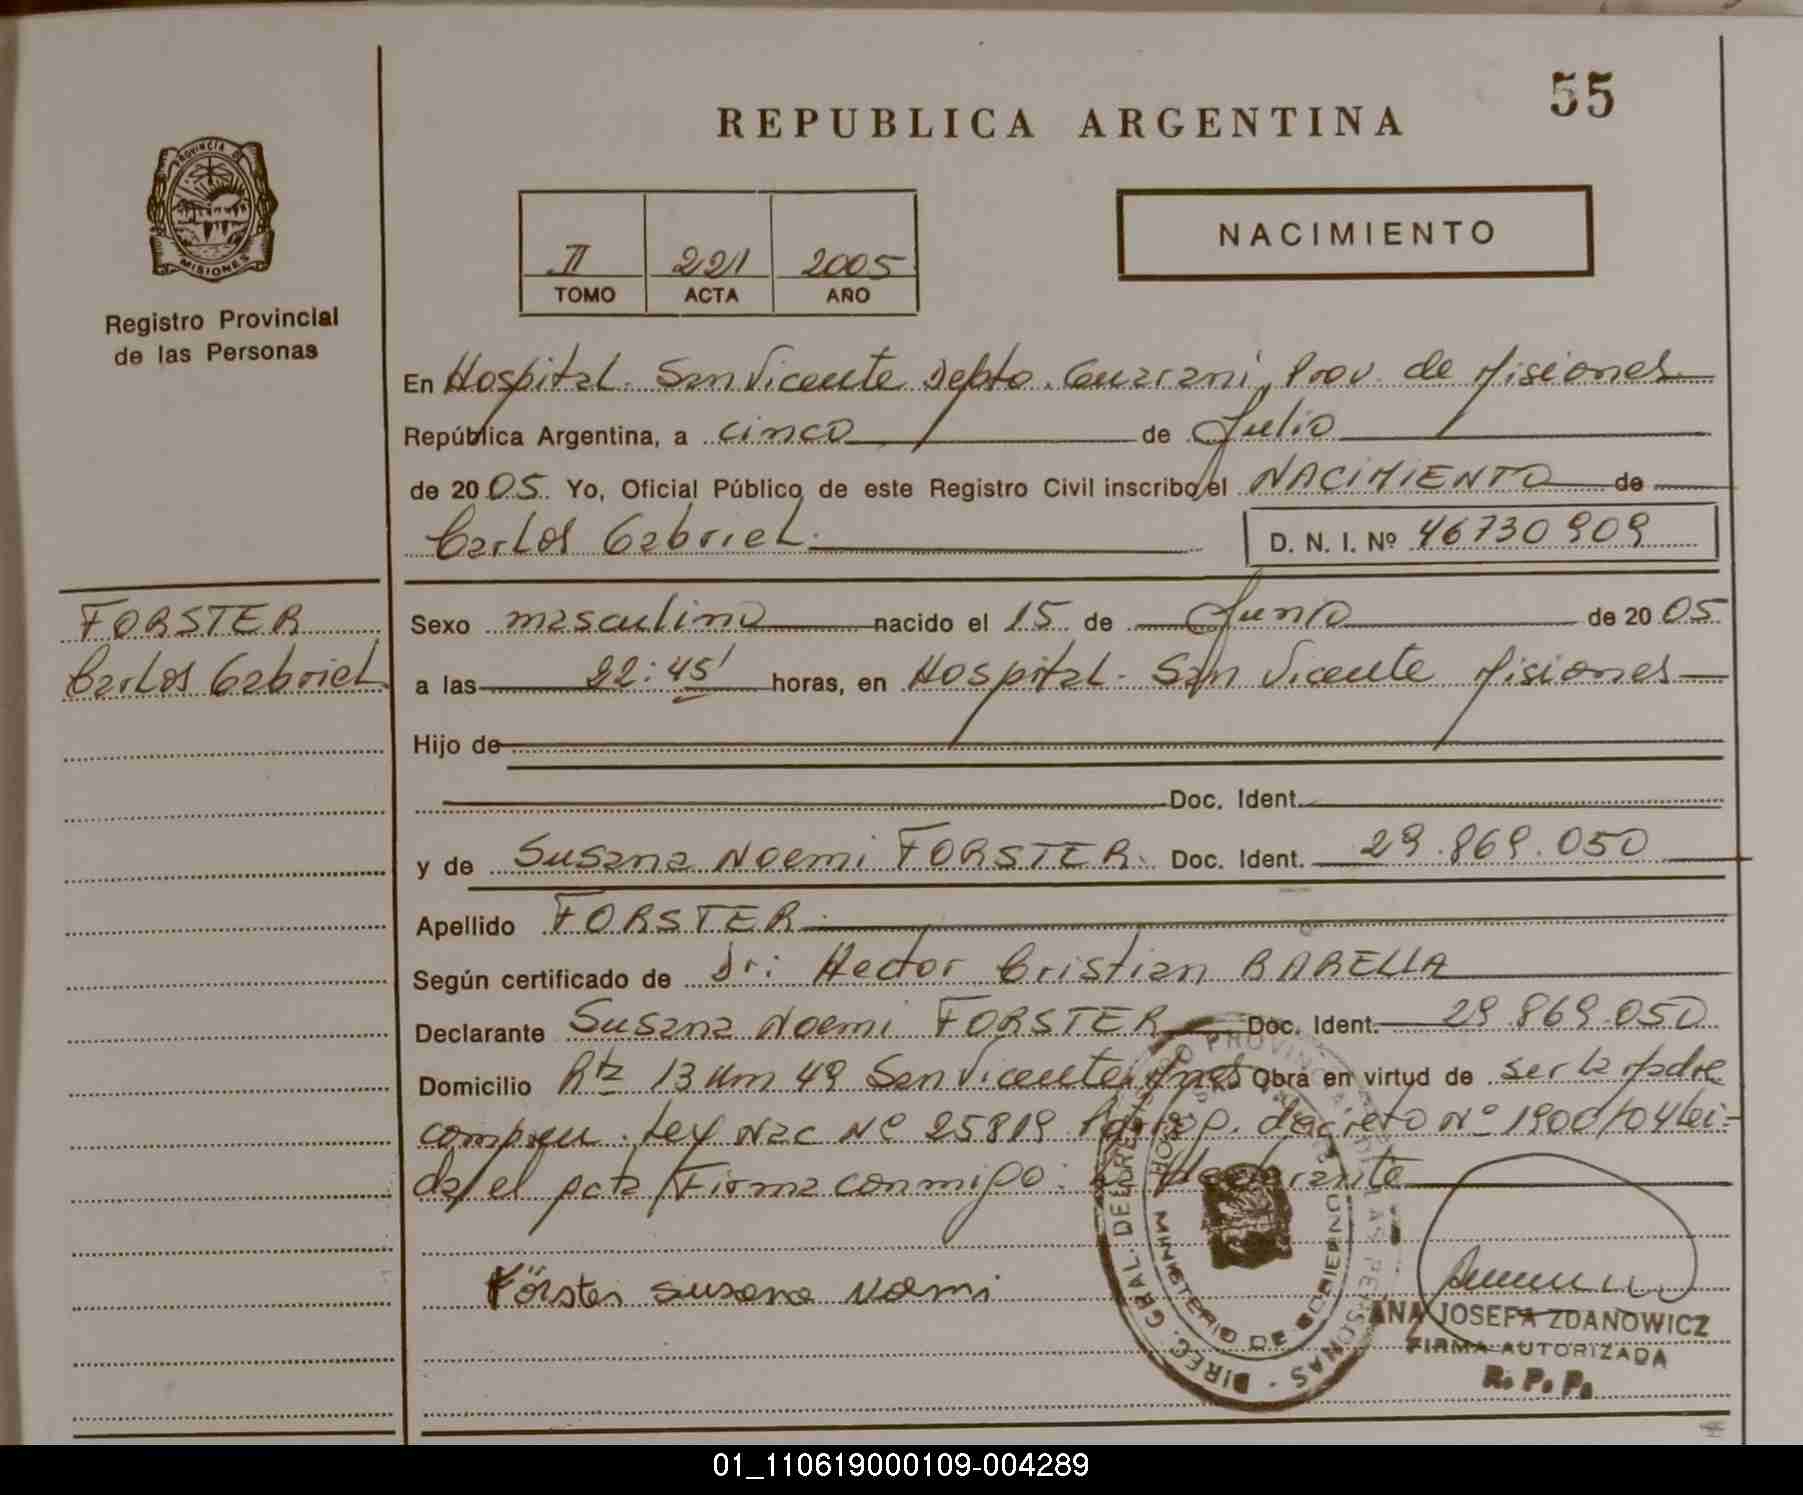 55
REPUBLICA ARGENTINA
PROVINCIA DE
MISIONES
Registro Provincial
de las Personas
II 221 2005
TOMO ACTA AÑO
NACIMIENTO
En Hospital. San Vicente Depto. Guarani, Prov. de Misiones
República Argentina, a cinco de Julio
de 2005. Yo, Oficial Público de este Registro Civil inscribo el NACIMIENTO de
Carlos Gabriel.
D. N. I. Nº 46730909
FORSTER
Carlos Gabriel
Sexo masculino nacido el 15 de Junio de 2005
a las 22:45' horas, en Hospital. San Vicente Misiones
Hijo de
Doc. Ident.
y de Susana Noemi FORSTER. Doc. Ident. 29.869.050
Apellido FORSTER.
Según certificado de Dr: Hector Cristian BARELLA
Declarante Susana Noemi FORSTER Doc. Ident. 29.869.050
Domicilio Rta 13 Km 49 San Vicente, Mnes Obra en virtud de ser la Madre
Ley Nac Nº 25819 decreto Nº 1900/04 Lei-
da el acta Firma conmigo: La declarante
Förster Susana Noemi
DIREC. GRAL. DEL REGISTRO PROVINCIAL DE LAS PERSONAS
MINISTERIO DE GOBIERNO
ANA JOSEFA ZDANOWICZ
FIRMA AUTORIZADA
R. P. P.
01_110619000109-004289